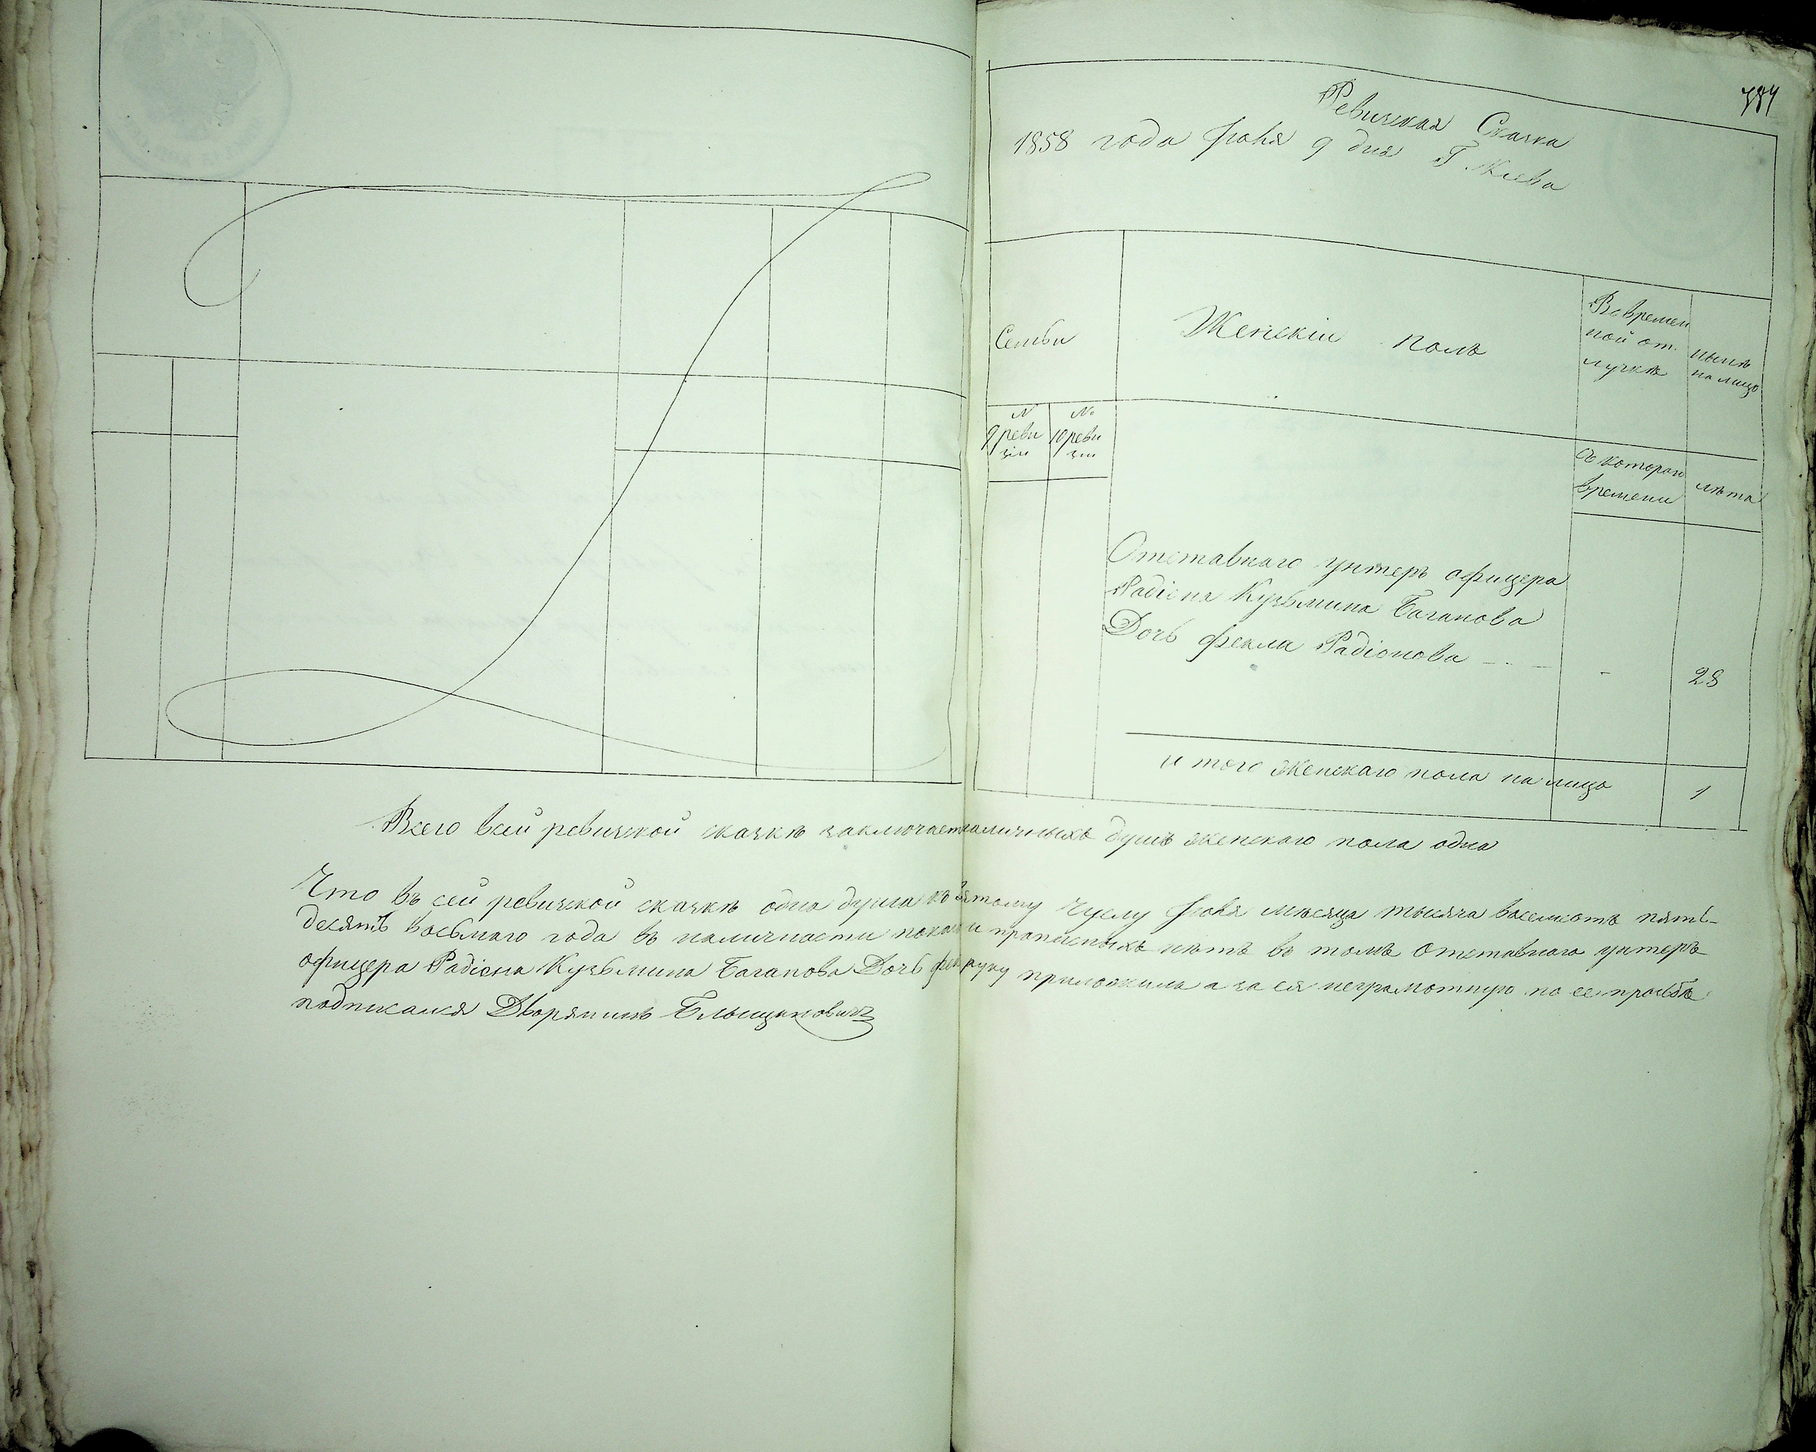 784
Ревизская Сказка
1858 года Июня 9 дня Г Киева
Семьи
Женскій полъ
Вовремен
ной от
лучкѣ
нынѣ
на лицо
№
9 реви
зіи
№
10 реви
зіи
съ котораго
времени
лѣта
Отставнаго унтеръ офицера
Радіона Кузьмина Баганова
Дочь Фекла Радіонова - - -
- 28
и того женскаго пола на лицо 1
Всего всей ревизской сказкѣ заключает наличныхъ душъ женскаго пола одна
Что въ сей ревизской сказкѣ одна душа къ девятому Числу Июня мѣсяца тысяча восемсотъ пять-
десятъ восьмаго года въ наличности показана и прописныхъ нѣтъ въ томъ Отставнаго унтеръ
офицера Радіона Кузьмина Баганова Дочь Фекла руку приложила а за ея неграмотную по ее прозьбѣ
подписался Дворянинъ